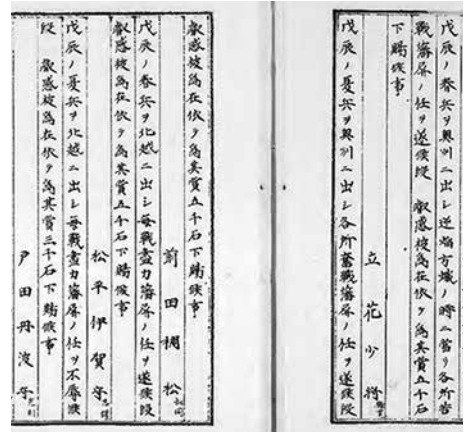 戊辰ノ春兵ヲ奥州ニ出シ逆焔方熾ノ時ニ當リ各所苦
戰藩屏ノ任ヲ遂候段　叡感被為在依ヲ為其賞五千石
下賜候事
立花少将
戊辰ノ夏兵ヲ奥州ニ出シ各所奮戰藩屏ノ任ヲ遂候段
叡感被為在依ヲ為其賞五千石下賜候事
前田稠松
戊辰ノ春兵ヲ北越ニ出シ毎戰盡力藩屏ノ任ヲ遂候段
叡感被為在依ヲ為其賞五千石下賜候事
松平伊賀守
戊辰ノ夏兵ヲ北越ニ出シ毎戰盡力藩屏ノ任ヲ不辱候
段　叡感被為在依ヲ為其賞三千石下賜候事
戸田丹波守